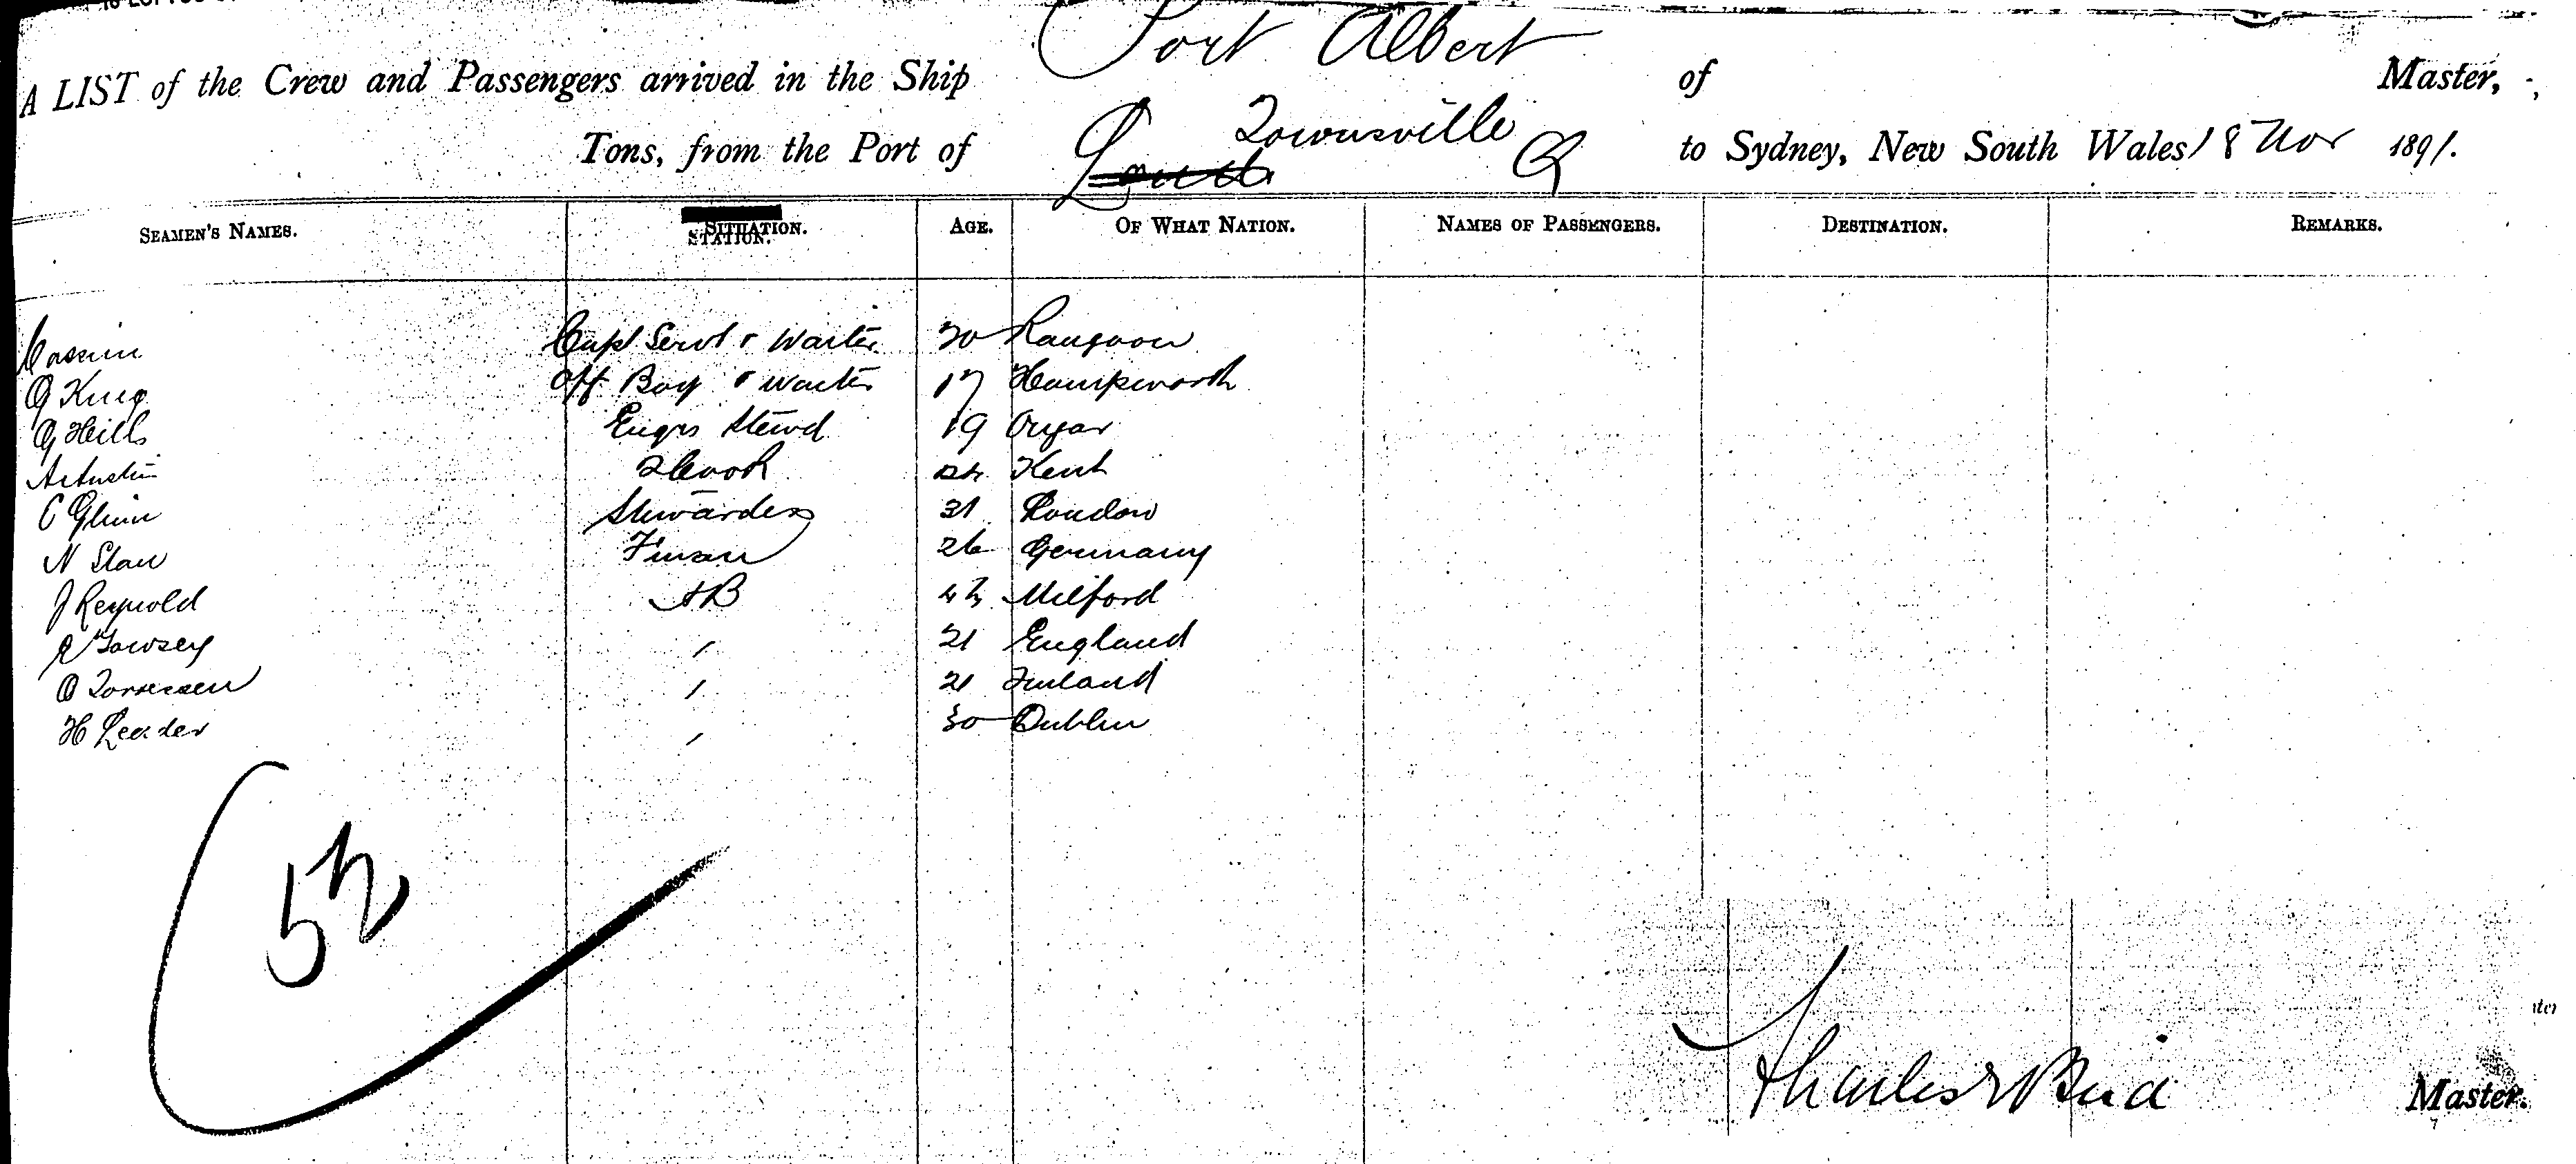 Port Albert
A LIST of the Crew and Passengers arrived in the Ship of Master,
Townsville
Tons, from the Port of to Sydney, New South Wales 18 Nov 1891.
SEAMEN'S NAMES. SITUATION. STATION. AGE. OF WHAT NATION. NAMES OF PASSENGERS. DESTINATION. REMARKS.
Cassim Capt Servt & Waiter 20 Rangoon
G King Off Boy & Waiter 17
G Hills Engrs Stewd 19 Ongar
A Austin 2 Cook 24 Kent
C Glinn Stewardess 31 London
N Stau F'man 26 Germany
J Reynold AB 42 Milford
Towsey " 21 England
O " 21 Finland
H Leader " 30 Dublin
52
Charles Bird
Master.